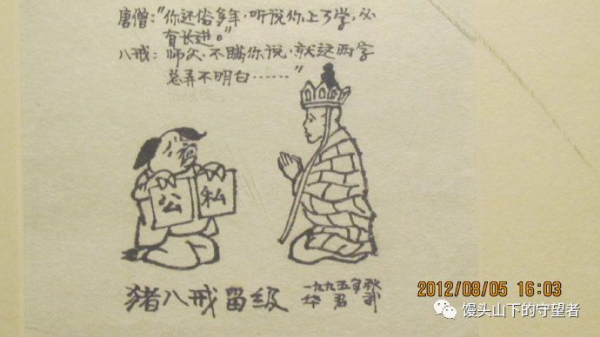 唐僧：“你还俗多年，听说你上了学，必
有长进。”
八戒：师父，不瞒你说，就这两字
总弄不明白……”
公
私
猪八戒留级
一九九五年秋
华君武
2012/08/05 16:03
馒头山下的守望者